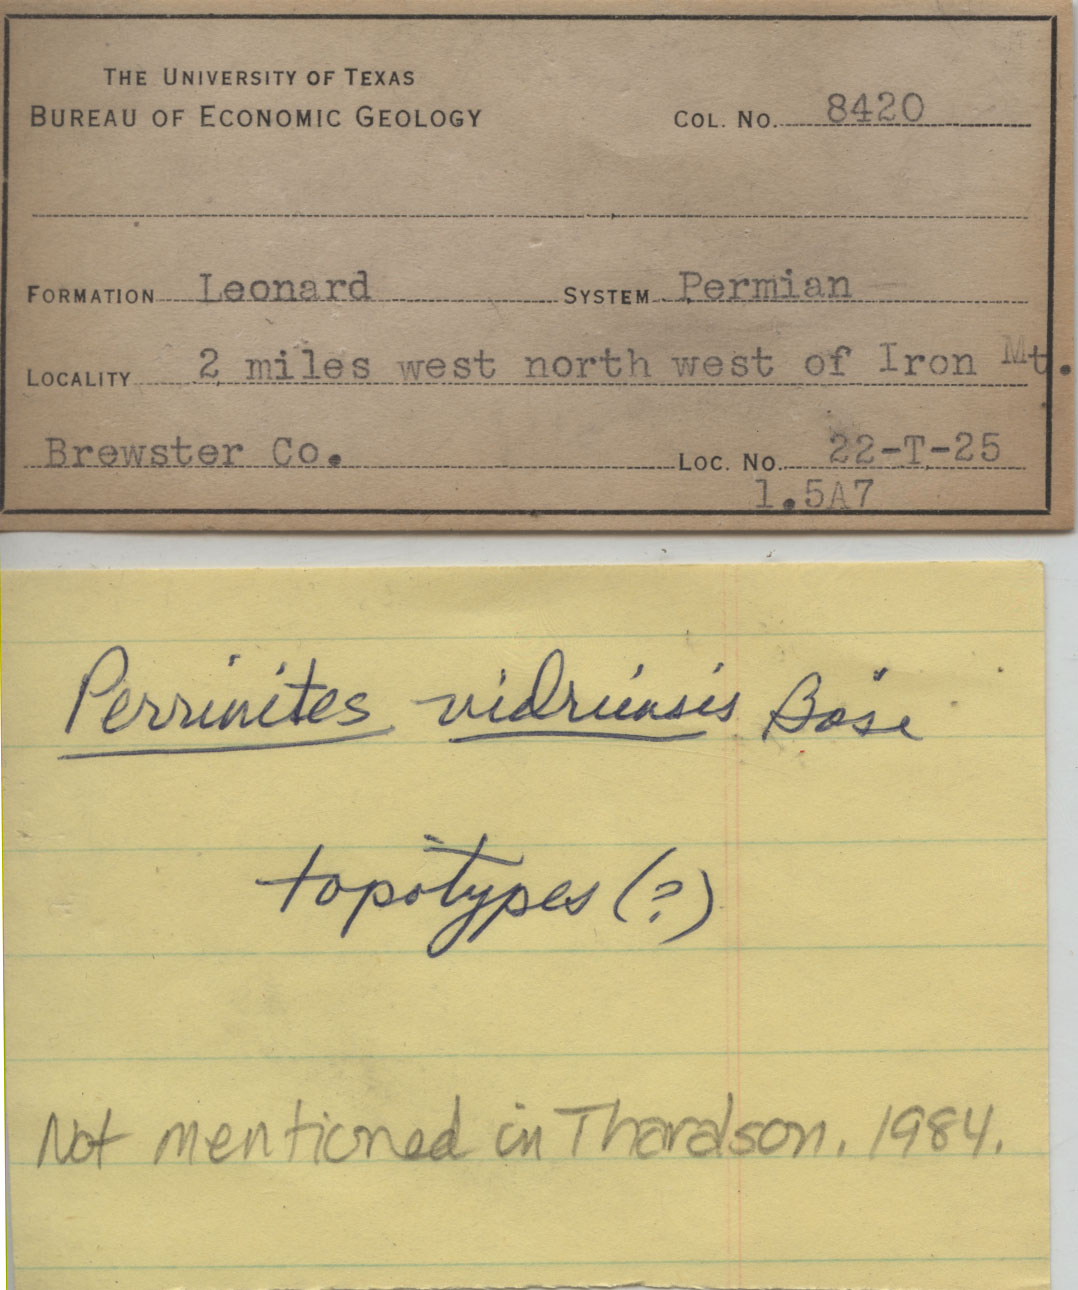 THE UNIVERSITY OF TEXAS
BUREAU OF ECONOMIC GEOLOGY COL. NO. 8420
FORMATION Leonard SYSTEM Permian
LOCALITY 2 miles west north west of Iron Mt.
Brewster Co. LOC. NO. 22-T-25
1.5A7
Perrinites vidriensis Böse
topotypes (?)
Not mentioned in Tharalson, 1984.